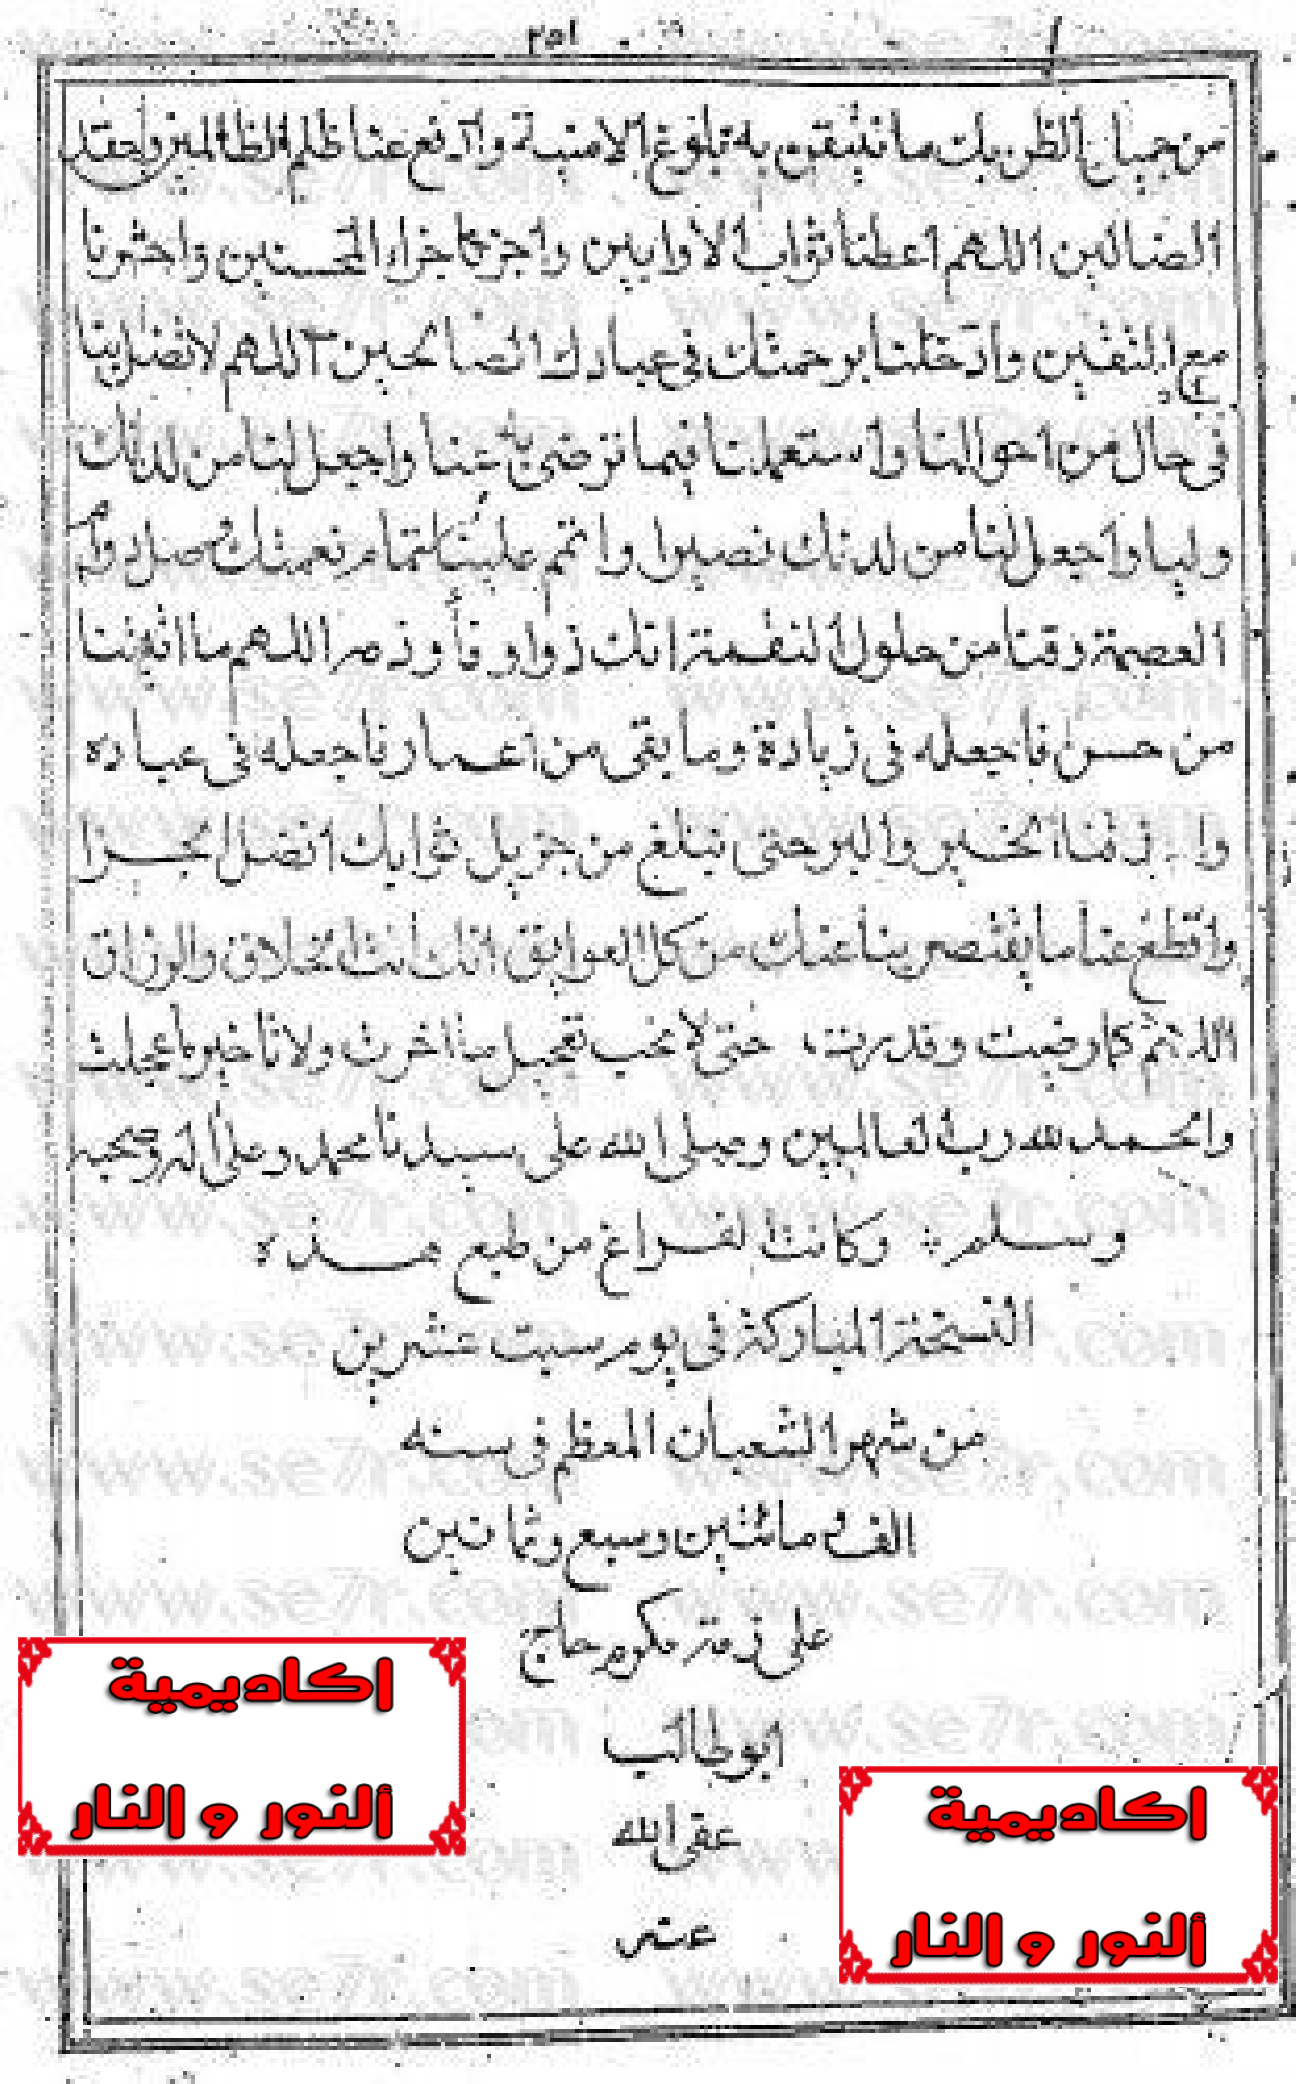 ٢٥١
من جميل الظن بك ما نتيقن به بلوغ الامنية وادفع عنا ظلم الظالمين
الضالين اللهم اعطنا ثواب الاوابين واجزنا جزاء المحسنين واحشرنا
مع المتقين وادخلنا برحمتك فى عبادك الصالحين اللهم لا تضل بنا
فى حال من احوالنا واستعملنا فيما ترضى به عنا واجعل لنا من لدنك
وليا واجعل لنا من لدنك نصيرا واتمم علينا تمام نعمتك
العصمة وقنا من حلول النقمة انك ذو اللهم ما
من حسن فاجعله فى زيادة وما بقى من اعمار فاجعله فى عباده
الخير والبر حتى نبلغ من جزيل ثوابك افضل الجزا
واقطع عنا ما بنا عنك من كل العوايق انك انت الخلاق والرزاق
اللهم كما رضيت وقدرت حتى لا نحب تعجيل ما اخرت ولا تاخير ما عجلت
والحمد لله رب العالمين وصلى الله على سيدنا محمد وعلى اله وصحبه
وسلم وكانت الفراغ من طبع هذه
النسخة المباركة فى يوم سبت عشرين
من شهر الشعبان المعظم فى سنه
الف مائتين وسبع وثمانين
على ذمة مكرم حاج
ابو طالب
عفى الله
عنه
اكاديمية
ألنور و النار
اكاديمية
ألنور و النار
www.se7r.com